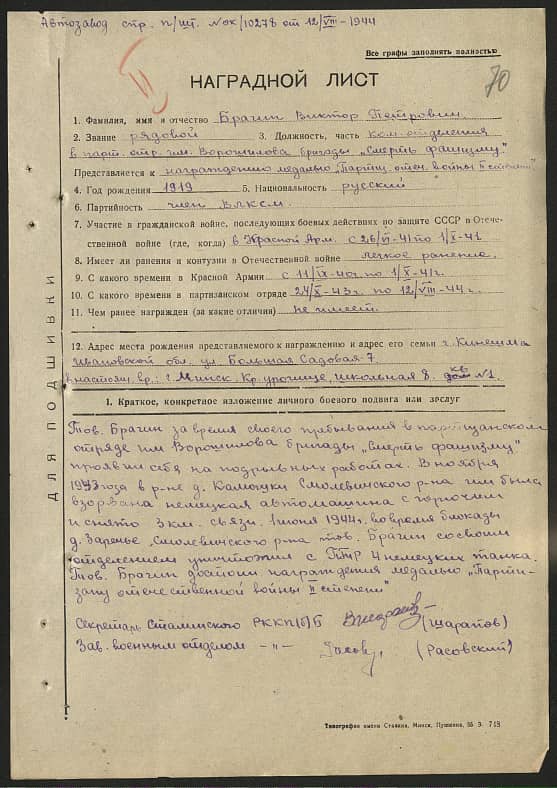 Автозавод стр. п/шт. №ОК/10278 от 12/VIII-1944
Все графы заполнять полностью
70
НАГРАДНОЙ ЛИСТ
1. Фамилия, имя и отчество Брагин Виктор Петрович.
2. Звание рядовой 3. Должность, часть ком. отделения
в парт. отр. им. Ворошилова бригады „Смерть фашизму"
Представляется к награждению медалью „Партиз. отеч. войны II степени"
4. Год рождения 1919 5. Национальность русский
6. Партийность член ВЛКСМ
7. Участие в гражданской войне, последующих боевых действиях по защите СССР в Отече-
ственной войне (где, когда) в Красной Арм. с 26/VI-41 по 1/X-41
8. Имеет ли ранения и контузии в Отечественной войне легкое ранение.
9. С какого времени в Красной Армии с 11/IX-40г. по 1/X-41г.
10. С какого времени в партизанском отряде 24/X-43г. по 12/VIII-44г.
11. Чем ранее награжден (за какие отличия) не имеет.
12. Адрес места рождения представляемого к награждению и адрес его семьи г. Кинешма
Ивановской обл. ул. Большая Садовая-7.
в настоящ. вр.: г. Минск, Кр. урочище, школьная 8. кв №1.
1. Краткое, конкретное изложение личного боевого подвига или заслуг
Тов. Брагин за время своего пребывания в партизанском
отряде им Ворошилова бригады „Смерть фашизму"
проявил себя на подрывных работах. В ноября
1943 года в р-не д. Смолевичского р-на им была
взорвана немецкая автомашина с горючем
и снято 3 км. связи. 1 июня 1944г. во время блокады
д. Заречье, Смолевичского р-на тов. Брагин со своим
отделением уничтожил с ПТР 4 немецких танка.
Тов. Брагин достоин награждения медалью „Парти-
зану отечественной войны II степени"
Секретарь Сталинского РККП(б)Б (Шарапов)
Зав. военным отделом -"- (Расовский)
ДЛЯ ПОДШИВКИ
Типография имени Сталина, Минск, Пушкина, 55 З. 718